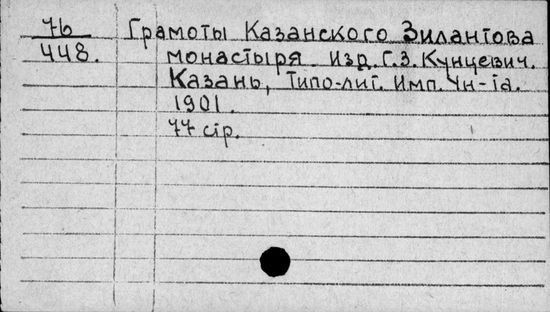 76 Грамоты Казанского Зилантова
448. монастыря изд. Г.З. Кунцевич.
Казань, Типо-лит. Имп. Ун-та.
1901.
77 стр.